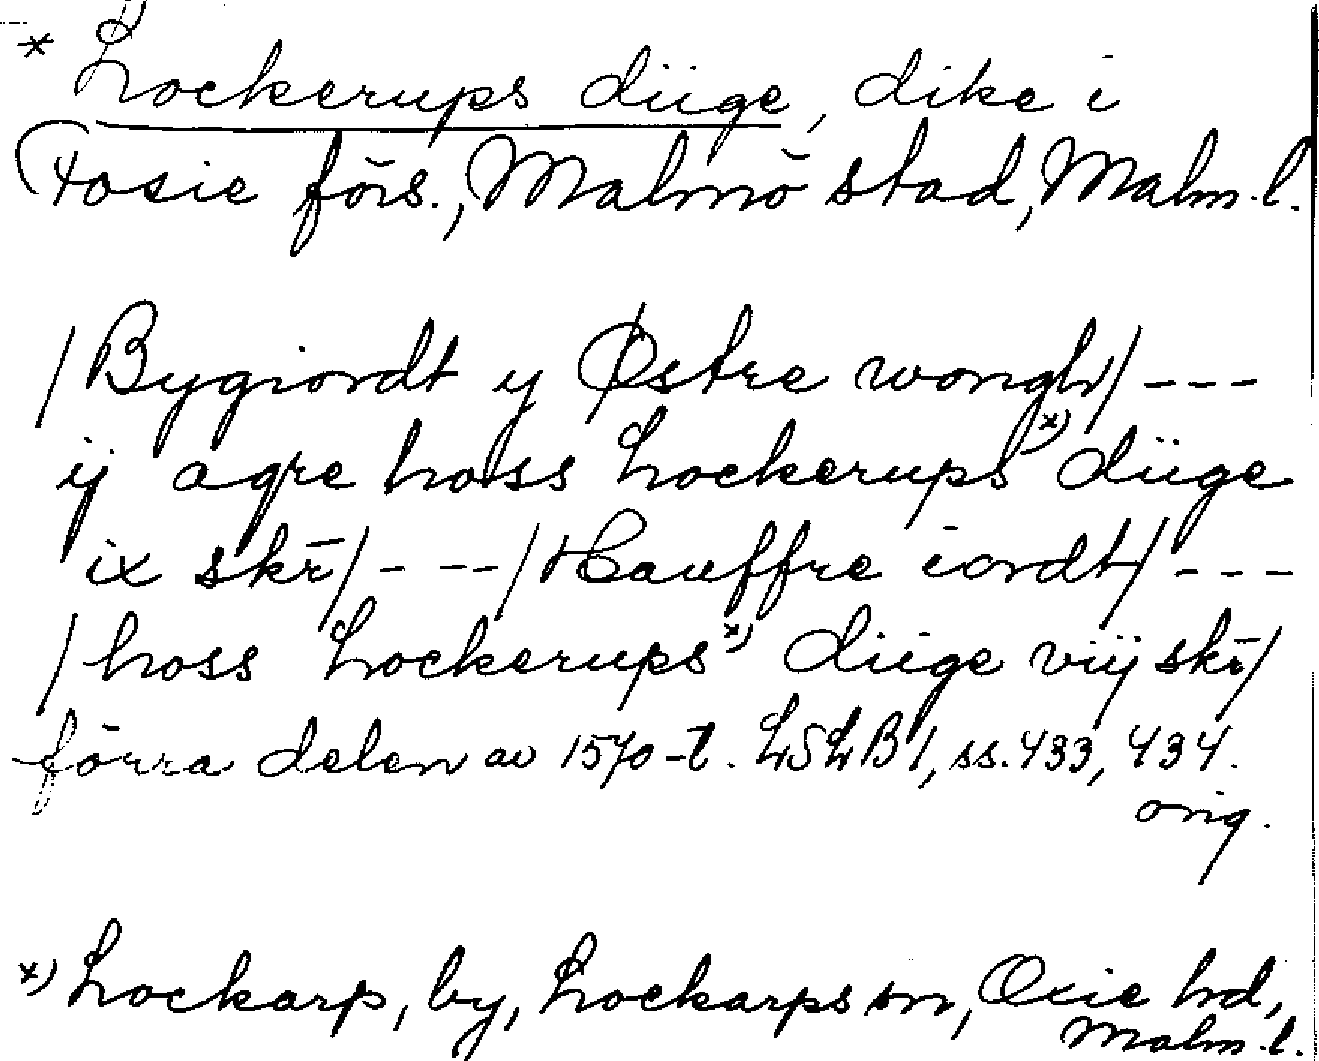 * Lockerups diige, dike i
Fosie förs., Malmö stad, Malm. l.
/Bygiordt y Østre wongh/ ---
ij agre hoss Lockerups x) diige
ix skr̄/ --- /Hauffre iordt/ ---
/hoss Lockerups x) diige viij skr̄/
förra delen av 1570-t. LSLB 1, ss. 433, 434.
orig.
x) Lockarp, by, Lockarps sn, Oxie hd,
Malm. l.